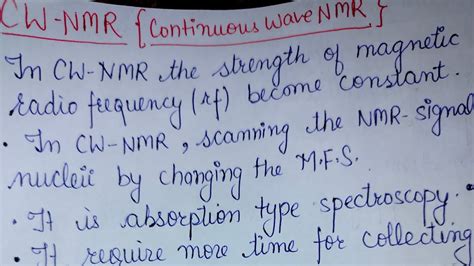 CW-NMR {Continuous Wave NMR}
In CW-NMR the strength of magnetic
radio frequency (rf) become constant.
• In CW-NMR, scanning the NMR-signal
nucleii by changing the M.F.S.
• It is absorption type spectroscopy.
• It require more time for collecting